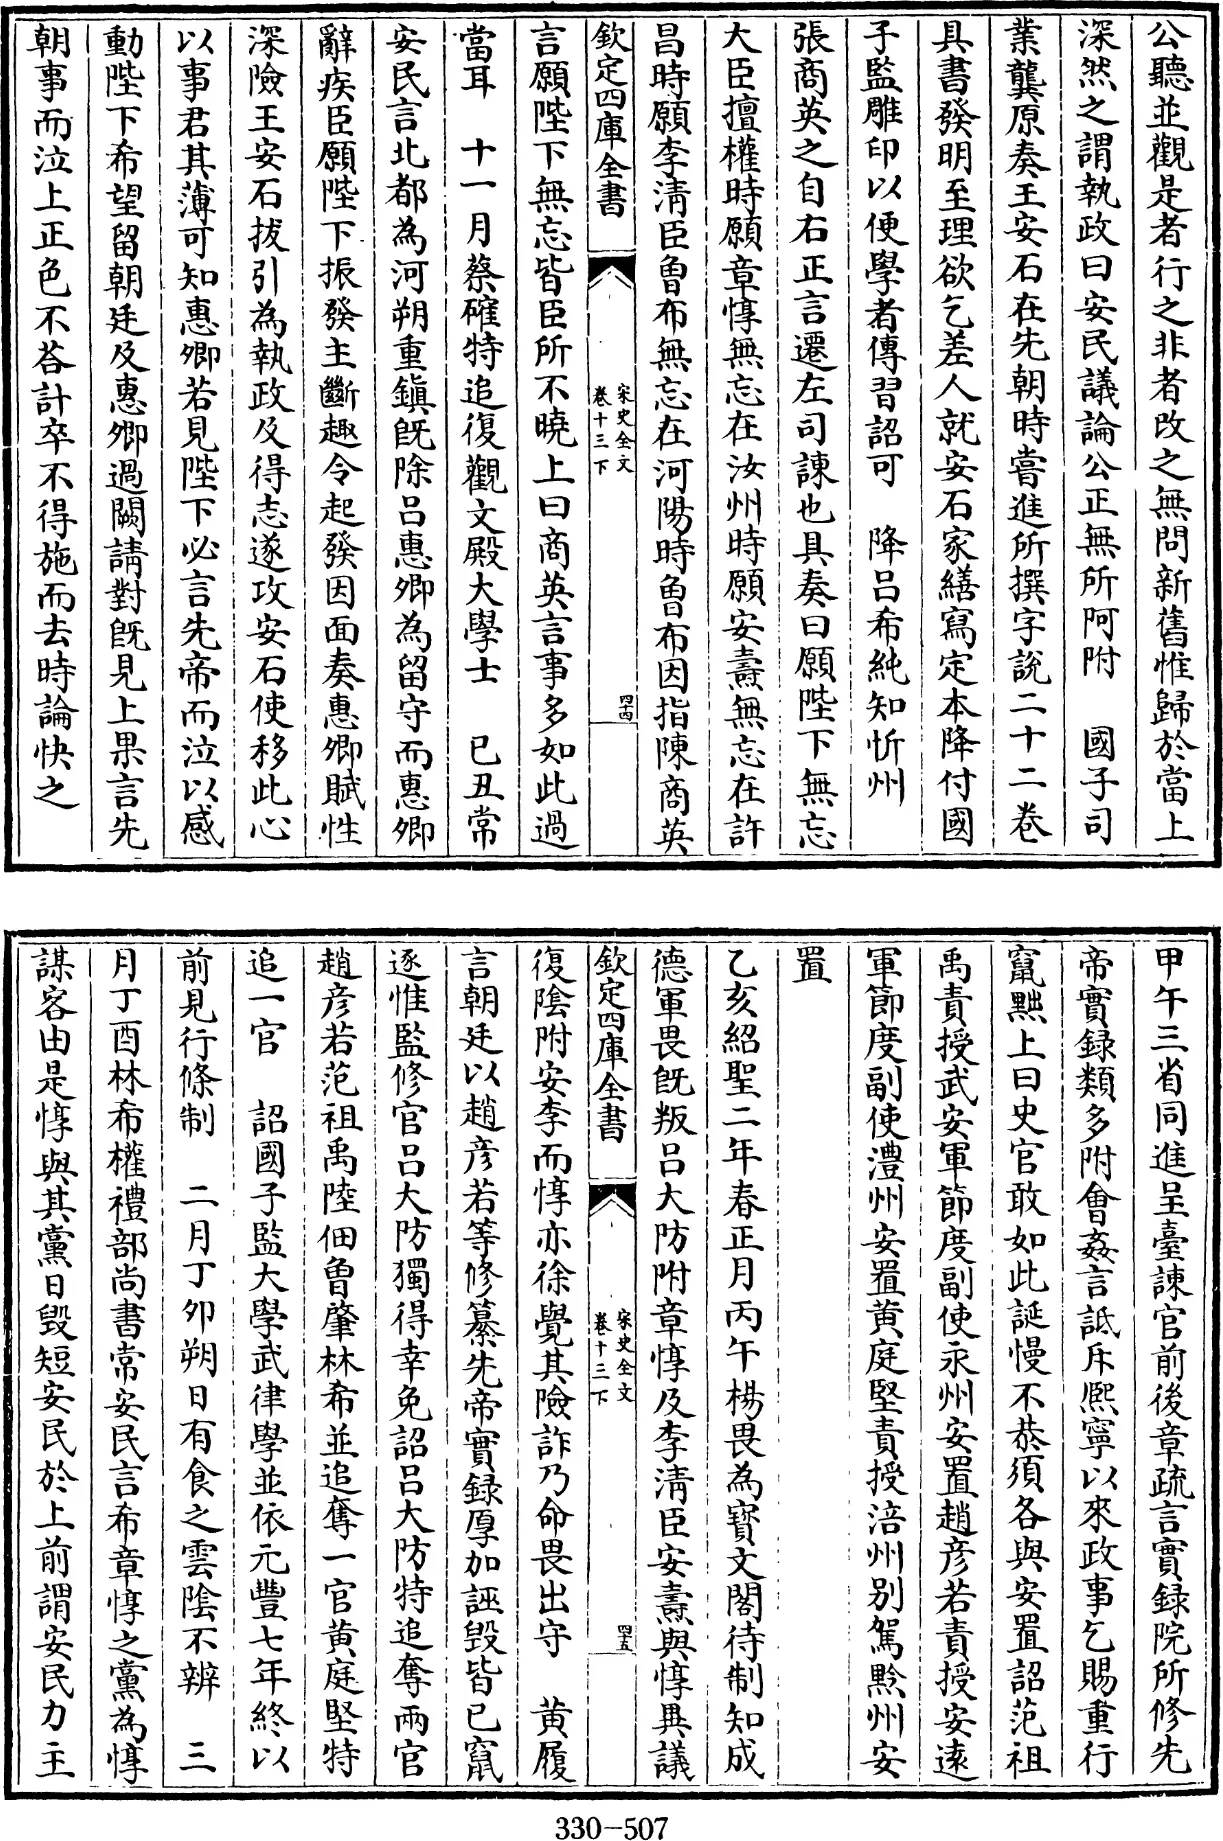 公聽並觀是者行之非者改之無問新舊惟歸於當上
深然之謂執政曰安民議論公正無所阿附　國子司
業龔原奏王安石在先朝時嘗進所撰字說二十二卷
具書發明至理欲乞差人就安石家繕寫定本降付國
子監雕印以便學者傳習詔可　降呂希純知忻州
張商英之自右正言遷左司諫也具奏曰願陛下無忘
大臣擅權時願章惇無忘在汝州時願安燾無忘在許
昌時願李清臣曾布無忘在河陽時曾布因指陳商英
欽定四庫全書
宋史全文
卷十三下
四十四
言願陛下無忘皆臣所不曉上曰商英言事多如此過
當耳　十一月蔡確特追復觀文殿大學士　已丑常
安民言北都為河朔重鎮旣除呂惠卿為留守而惠卿
辭疾臣願陛下振發主斷趣令起發因面奏惠卿賦性
深險王安石拔引為執政及得志遂攻安石使移此心
以事君其薄可知惠卿若見陛下必言先帝而泣以感
動陛下希望留朝廷及惠卿過闕請對旣見上果言先
朝事而泣上正色不荅計卒不得施而去時論快之
甲午三省同進呈臺諫官前後章疏言實録院所修先
帝實録類多附會姦言詆斥熙寧以來政事乞賜重行
竄黜上曰史官敢如此誕慢不恭須各與安置詔范祖
禹責授武安軍節度副使永州安置趙彦若責授安遠
軍節度副使澧州安置黄庭堅責授涪州别駕黔州安
置
乙亥紹聖二年春正月丙午楊畏為寳文閣待制知成
德軍畏旣叛呂大防附章惇及李清臣安燾與惇異議
欽定四庫全書
宋史全文
卷十三下
四十五
復陰附安李而惇亦徐覺其險詐乃命畏出守　黄履
言朝廷以趙彦若等修纂先帝實録厚加誣毁皆已竄
逐惟監修官呂大防獨得幸免詔呂大防特追奪兩官
趙彦若范祖禹陸佃曾肇林希並追奪一官黄庭堅特
追一官　詔國子監大學武律學並依元豐七年終以
前見行條制　二月丁卯朔日有食之雲陰不辨　三
月丁酉林希權禮部尚書常安民言希章惇之黨為惇
謀客由是惇與其黨日毁短安民於上前謂安民力主
330-507